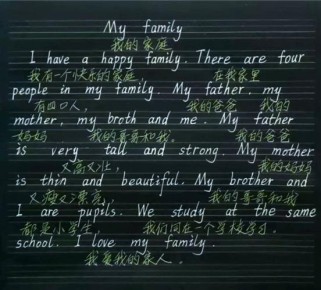 My family
我的家庭
I have a happy family. There are four
我有一个快乐的家庭, 在我家里
people in my family. My father, my
有四口人, 我的爸爸 我的
mother, my broth and me. My father
妈妈 我的哥哥和我。 我的爸爸
is very tall and strong. My mother
又高又壮, 我的妈妈
is thin and beautiful. My brother and
又瘦又漂亮, 我的哥哥和我
I are pupils. We study at the same
都是小学生, 我们同在一个学校学习。
school. I love my family.
我爱我的家人。